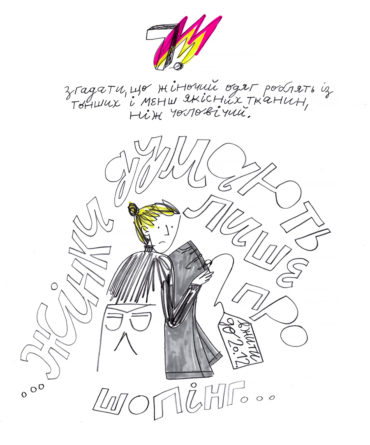 7.
згадати, що жіночий одяг роблять із
тонших і менш якісних тканин,
ніж чоловічий.
...жінки думають
лише про
шопінг...
вжити
до 20.12